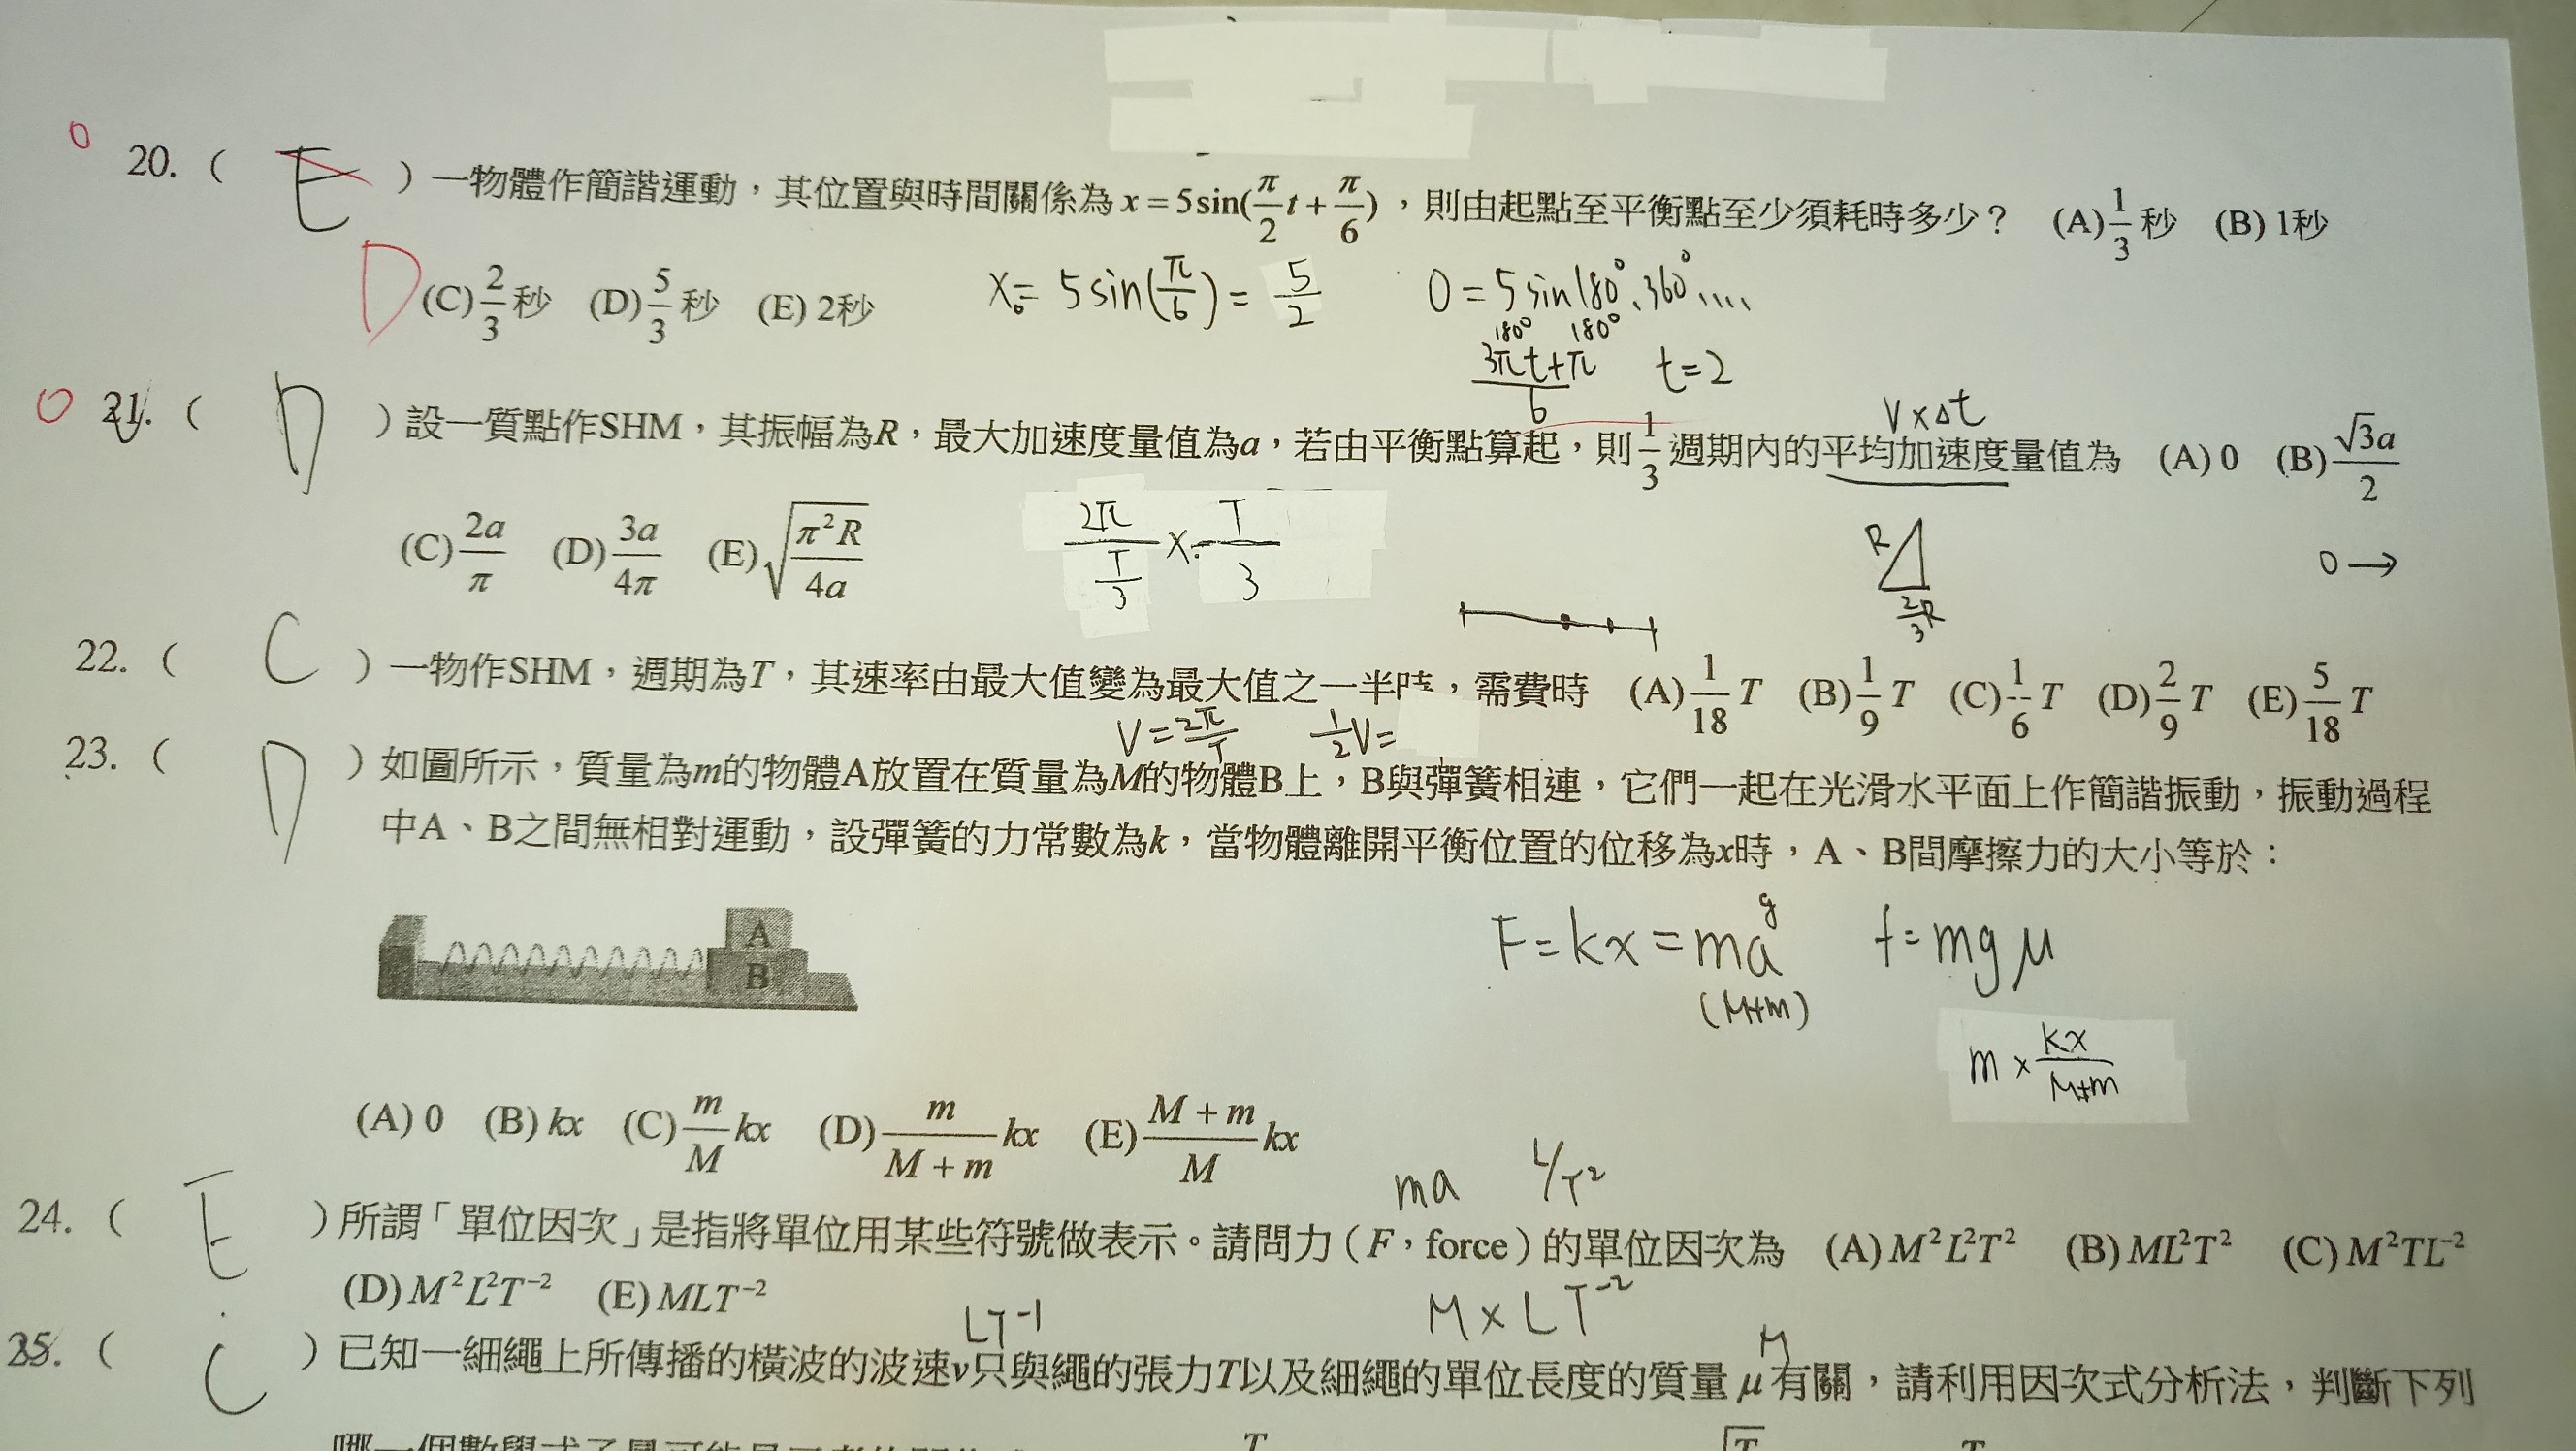 20. ( E ) 一物體作簡諧運動，其位置與時間關係為 x = 5sin(π/2 t + π/6) ，則由起點至平衡點至少須耗時多少？ (A) 1/3 秒 (B) 1秒
D (C) 2/3 秒 (D) 5/3 秒 (E) 2秒
x₀ = 5 sin(π/6) = 5/2 0 = 5 sin 180°、360°....
180° 180°
(3πt+π)/6 t=2
21. ( D ) 設一質點作SHM，其振幅為R，最大加速度量值為a，若由平衡點算起，則 1/3 週期內的平均加速度量值為 (A) 0 (B) √3a/2
V×Δt
(C) 2a/π (D) 3a/4π (E) √(π²R/4a)
2π/(T/3) × T/3 R 2/3R 0→
22. ( C ) 一物作SHM，週期為T，其速率由最大值變為最大值之一半時，需費時 (A) 1/18 T (B) 1/9 T (C) 1/6 T (D) 2/9 T (E) 5/18 T
V=2π/T 1/2V=
23. ( D ) 如圖所示，質量為m的物體A放置在質量為M的物體B上，B與彈簧相連，它們一起在光滑水平面上作簡諧振動，振動過程
中A、B之間無相對運動，設彈簧的力常數為k，當物體離開平衡位置的位移為x時，A、B間摩擦力的大小等於：
A
B
F=kx=ma g f=mgμ
(M+m)
m × kx/(M+m)
(A) 0 (B) kx (C) m/M kx (D) m/(M+m) kx (E) (M+m)/M kx
ma L/T²
24. ( E ) 所謂「單位因次」是指將單位用某些符號做表示。請問力（F，force）的單位因次為 (A) M²L²T² (B) ML²T² (C) M²TL⁻²
(D) M²L²T⁻² (E) MLT⁻²
LT⁻¹ M×LT⁻²
M
25. ( C ) 已知一細繩上所傳播的橫波的波速v只與繩的張力T以及細繩的單位長度的質量 μ 有關，請利用因次式分析法，判斷下列